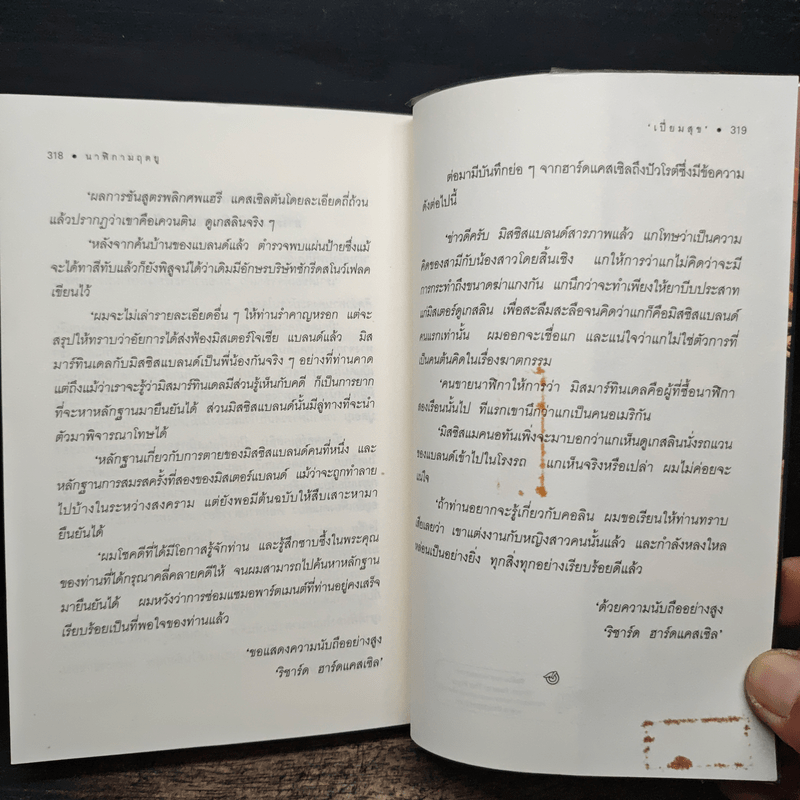 318 • นาฬิกามฤตยู
'ผลการชันสูตรพลิกศพแฮรี แคสเซิลตันโดยละเอียดถี่ถ้วน
แล้วปรากฏว่าเขาคือเควนติน ดูเกสลินจริง ๆ
'หลังจากค้นบ้านของแบลนด์แล้ว ตำรวจพบแผ่นป้ายซึ่งแม้
จะได้ทาสีทับแล้วก็ยังพิสูจน์ได้ว่าเดิมมีอักษรบริษัทซักรีดสโนว์เฟลค
เขียนไว้
'ผมจะไม่เล่ารายละเอียดอื่น ๆ ให้ท่านรำคาญหรอก แต่จะ
สรุปให้ทราบว่าอัยการได้ส่งฟ้องมิสเตอร์โจเซีย แบลนด์แล้ว มิส
มาร์ทินเดลกับมิสซิสแบลนด์เป็นพี่น้องกันจริง ๆ อย่างที่ท่านคาด
แต่ถึงแม้ว่าเราจะรู้ว่ามิสมาร์ทินเดลมีส่วนรู้เห็นกับคดี ก็เป็นการยาก
ที่จะหาหลักฐานมายืนยันได้ ส่วนมิสซิสแบลนด์นั้นมีลู่ทางที่จะนำ
ตัวมาพิจารณาโทษได้
'หลักฐานเกี่ยวกับการตายของมิสซิสแบลนด์คนที่หนึ่ง และ
หลักฐานการสมรสครั้งที่สองของมิสเตอร์แบลนด์ แม้ว่าจะถูกทำลาย
ไปบ้างในระหว่างสงคราม แต่ยังพอมีต้นฉบับให้สืบเสาะหามา
ยืนยันได้
'ผมโชคดีที่ได้มีโอกาสรู้จักท่าน และรู้สึกซาบซึ้งในพระคุณ
ของท่านที่ได้กรุณาคลี่คลายคดีให้ จนผมสามารถไปค้นหาหลักฐาน
มายืนยันได้ ผมหวังว่าการซ่อมแซมอพาร์ตเมนต์ที่ท่านอยู่คงเสร็จ
เรียบร้อยเป็นที่พอใจของท่านแล้ว
'ขอแสดงความนับถืออย่างสูง
'ริชาร์ด ฮาร์ดแคสเซิล'
'เปี่ยมสุข' • 319
ต่อมามีบันทึกย่อ ๆ จากฮาร์ดแคสเซิลถึงปัวโรต์ซึ่งมีข้อความ
ดังต่อไปนี้
'ข่าวดีครับ มิสซิสแบลนด์สารภาพแล้ว แกโทษว่าเป็นความ
คิดของสามีกับน้องสาวโดยสิ้นเชิง แกให้การว่าแกไม่คิดว่าจะมี
การกระทำถึงขนาดฆ่าแกงกัน แกนึกว่าจะทำเพียงให้ยาบีบประสาท
แก่มิสเตอร์ดูเกสลิน เพื่อสะลึมสะลือจนคิดว่าแกก็คือมิสซิสแบลนด์
คนแรกเท่านั้น ผมออกจะเชื่อแก และแน่ใจว่าแกไม่ใช่ตัวการที่
เป็นคนต้นคิดในเรื่องฆาตกรรม
'คนขายนาฬิกาให้การว่า มิสมาร์ทินเดลคือผู้ที่ซื้อนาฬิกา
สองเรือนนั้นไป ทีแรกเขานึกว่าแกเป็นคนอเมริกัน
'มิสซิสแมคนอทันเพิ่งจะมาบอกว่าแกเห็นดูเกสลินนั่งรถแวน
ของแบลนด์เข้าไปในโรงรถ แกเห็นจริงหรือเปล่า ผมไม่ค่อยจะ
แน่ใจ
'ถ้าท่านอยากจะรู้เกี่ยวกับคอลิน ผมขอเรียนให้ท่านทราบ
เสียเลยว่า เขาแต่งงานกับหญิงสาวคนนั้นแล้ว และกำลังหลงใหล
หล่อนเป็นอย่างยิ่ง ทุกสิ่งทุกอย่างเรียบร้อยดีแล้ว
'ด้วยความนับถืออย่างสูง
'ริชาร์ด ฮาร์ดแคสเซิล'